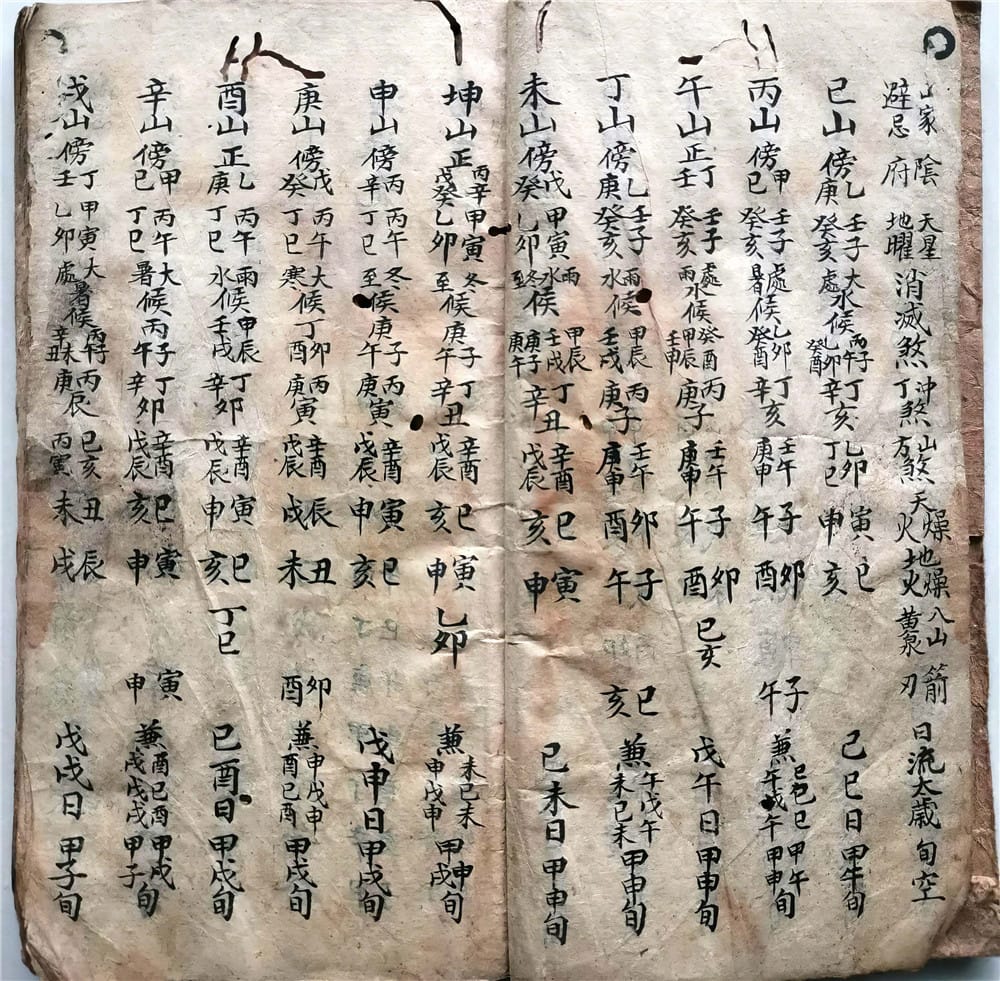 山家避忌 陰府 天星地曜 消滅煞 冲丁煞 山方煞 天火燥地火燥 八山黄泉 箭刃 日流太歲 旬空
巳山 傍乙庚 壬子癸亥 大處水候 丙子丙午乙卯癸酉 丁亥辛亥 乙卯丁巳 寅申 巳亥 己巳日 甲午旬
丙山 傍甲巳 壬子癸亥 處暑候 乙卯癸酉 丁亥辛亥 壬午庚申 子午 卯酉 子午 兼巳己巳午戊午 甲午甲申旬
午山 正丁壬 壬子癸亥 處雨水候 癸酉甲辰壬申 丙子庚子 壬午庚申 子午 卯酉 巳亥 戊午日 甲申旬
丁山 傍乙庚 壬子癸亥 雨水候 甲辰壬戌 丙子庚子 壬午庚申 卯酉 子午 巳亥 兼午戊午未己未 甲申旬
未山 傍戊癸 甲寅乙卯 雨水冬至候 甲辰壬戌庚子庚午 丁丑辛丑 辛酉戊辰 巳亥 寅申 己未日 甲申旬
坤山 正丙辛戊癸 甲寅乙卯 冬至候 庚子庚午 丁丑辛丑 辛酉戊辰 巳亥 寅申 乙卯 兼未己未申戊申 甲申甲戌旬
申山 傍丙辛 丙午丁巳 冬至候 庚子庚午 丙寅庚寅 辛酉戊辰 寅申 巳亥 戊申日 甲戌旬
庚山 傍戊癸 丙午丁巳 大寒候 丁卯丁酉 丙寅庚寅 辛酉戊辰 辰戌 丑未 卯酉 兼申戊申酉己酉 甲戌旬
酉山 正乙庚 丙午丁巳 雨水候 甲辰壬戌 丁卯辛卯 辛酉戊辰 寅申 巳亥 丁巳 己酉日 甲戌旬
辛山 傍甲巳 丙午丁巳 大暑候 丙子丙午 丁卯辛卯 辛酉戊辰 巳亥 寅申 寅申 兼酉己酉戌戊戌 甲戌甲子旬
戌山 傍丁壬 甲寅乙卯 大處暑候 丙子丙午辛未辛丑 丙辰庚辰 己亥丙寅 丑未 辰戌 戊戌日 甲子旬